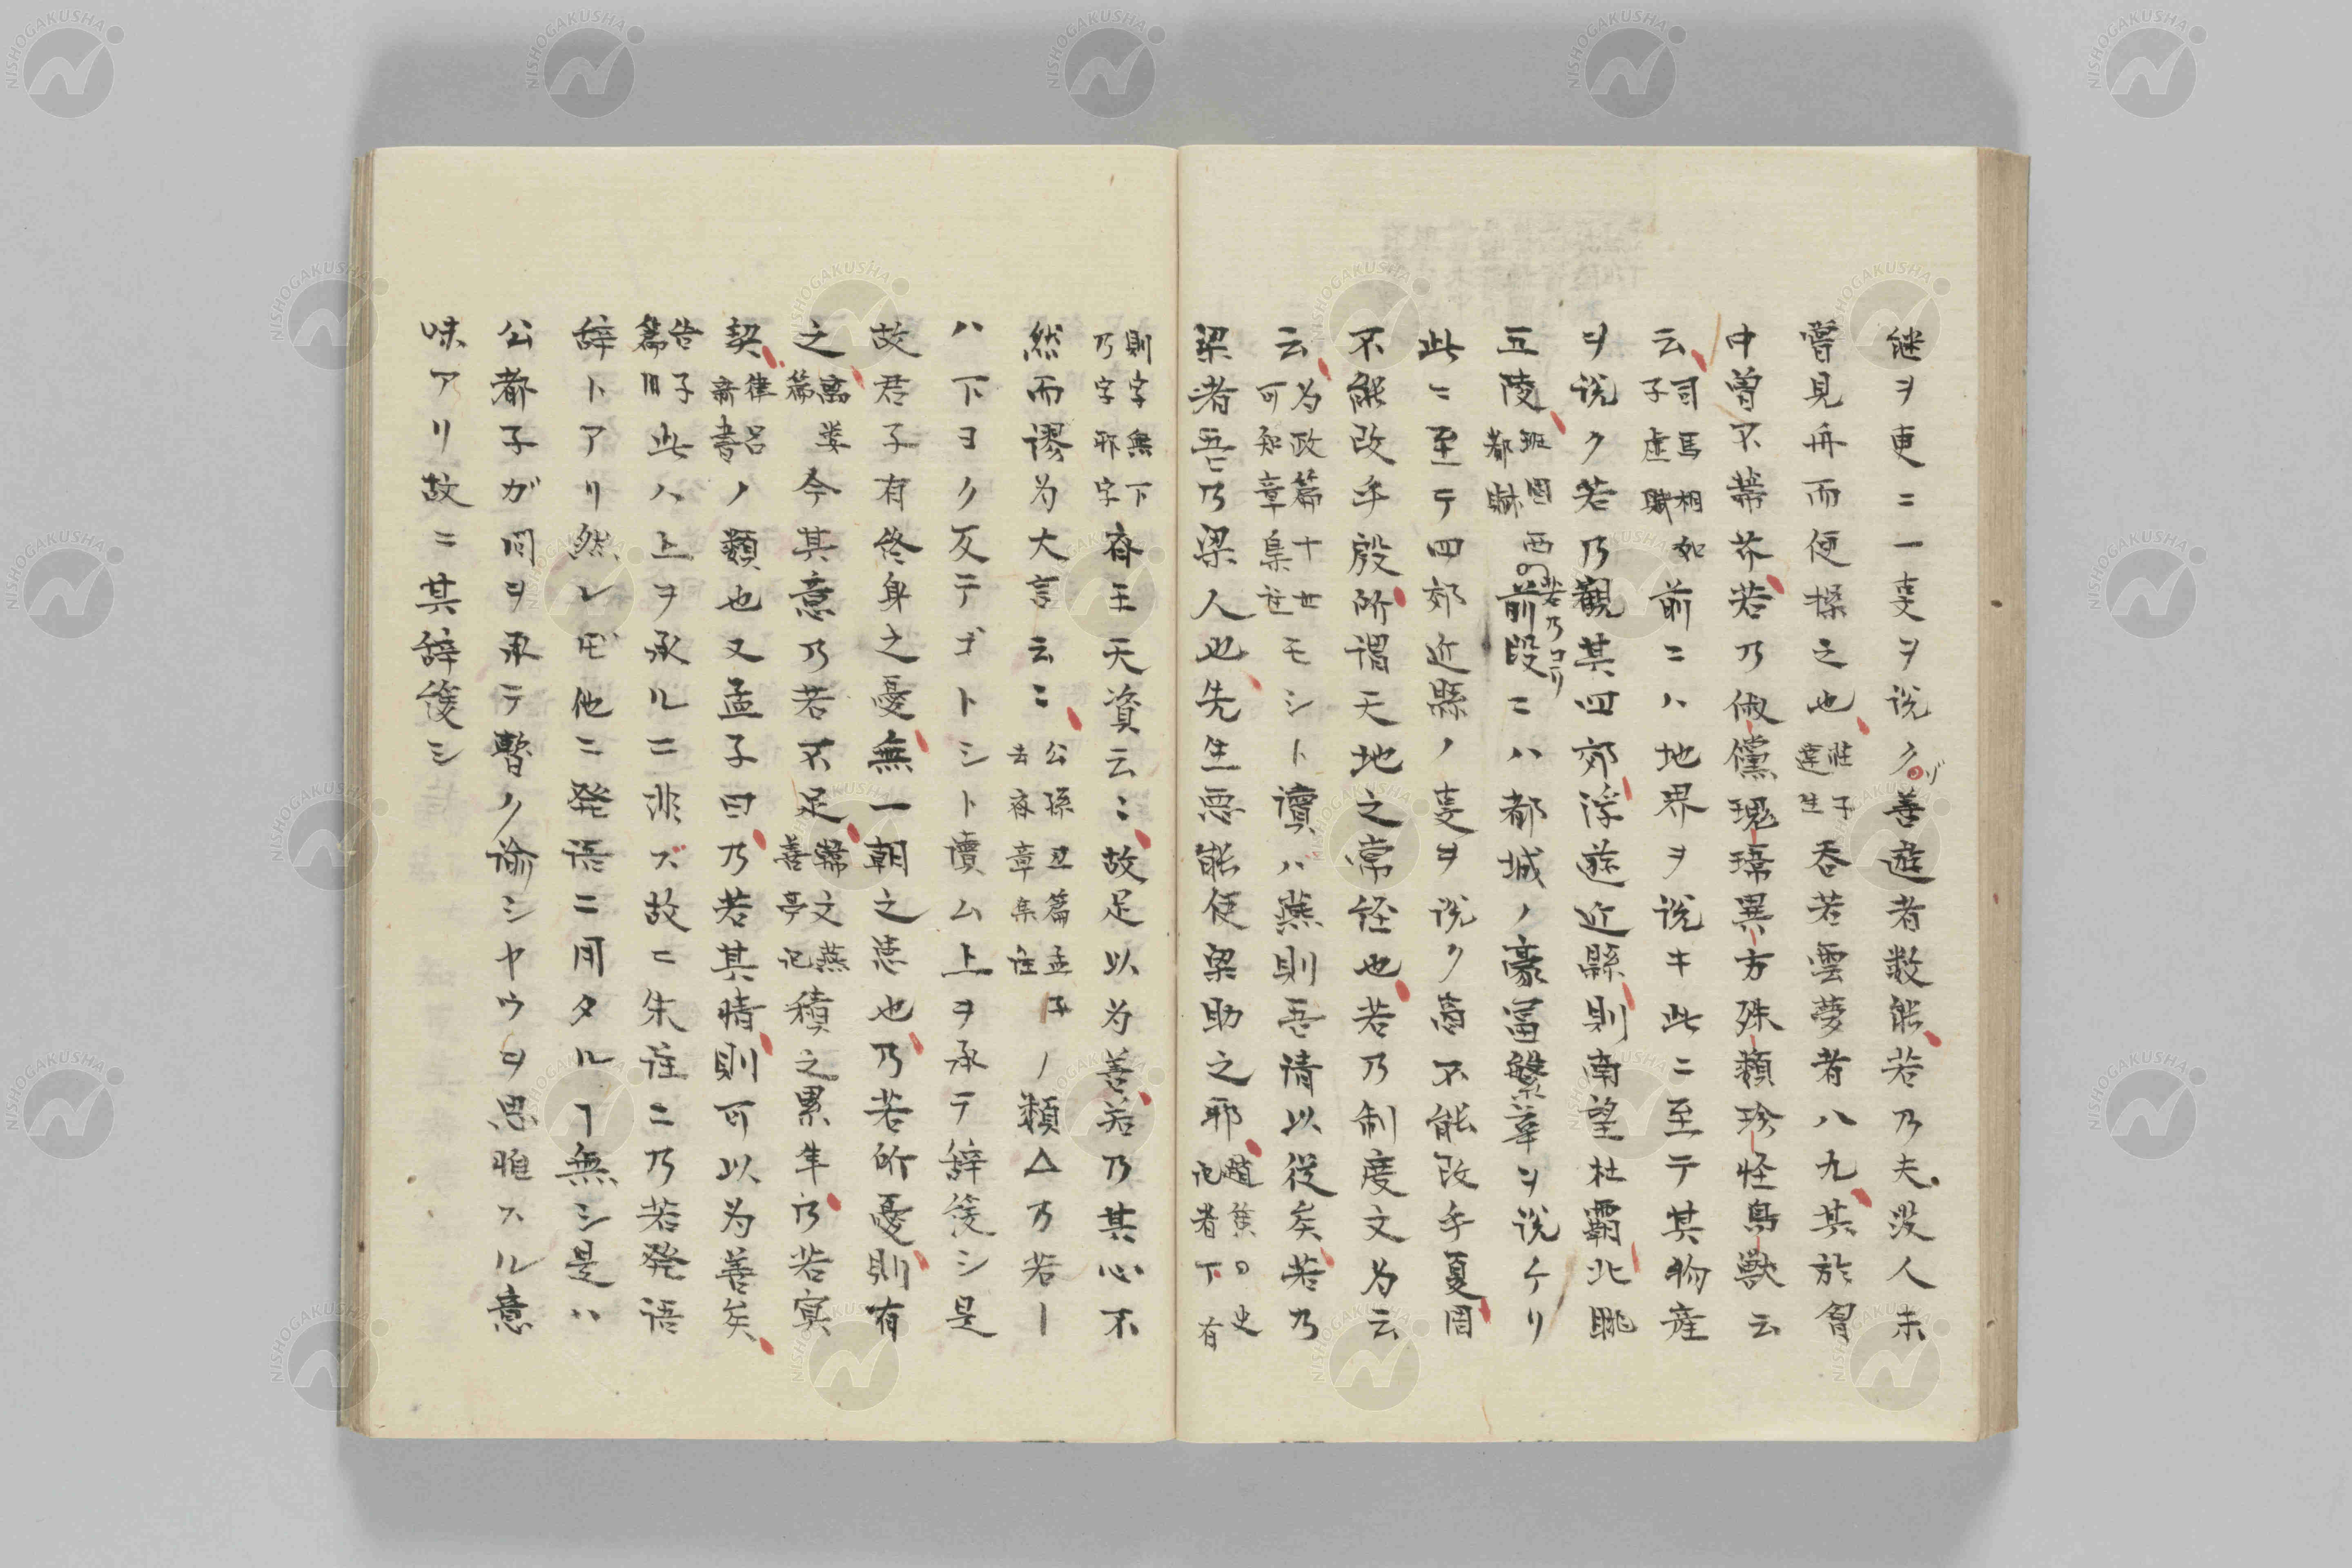 継ヲ更ニ一事ヲ説クゾ善遊者数能若乃夫没人未
嘗見舟而便操之也荘子達生呑若雲夢者八九其於胷
中曽不蔕芥若乃俶儻瑰瑋異方殊類珍怪鳥獣云
云司馬相如子虚賦前ニハ地界ヲ説キ此ニ至テ其物産
ヲ説ク若乃觀其四郊浮遊近縣則南望杜覇北眺
五陵班固西都賦若乃ヨリ前段ニハ都城ノ豪冨繁華ヲ説ケリ
此ニ至テ四郊近縣ノ事ヲ説ク啇不能改乎夏周
不能改乎殷所謂天地之常経也若乃制度文为云
云为政篇十世可知章集註モシト讀ハ燕則吾請以従矣若乃
梁者吾乃梁人也先生悪能使梁助之耶記者下有
則字無下乃字耶字斉王天資云〻故足以为善若乃其心不
然而謬为大言云〻公孫丑篇孟子去斉章集註ノ類△乃若ー
ハ下ヨク反テゴトシト讀ム上ヲ承テ辞緩シ是
故君子有終身之憂無一朝之患也乃若所憂則有
之離婁篇今其意乃若不足韓文燕喜亭記積之累年乃若寅
契律呂新書ノ類也又孟子曰乃若其情則可以为善矣
告子篇此ハ上ヲ承ルニ非ズ故ニ朱註ニ乃若発语
辞トアリ然レ𪜈他ニ発语ニ用タルヿ無シ是ハ
公都子ガ問ヲ承テ暫ク諭シヤウヲ思惟スル意
味アリ故ニ其辞緩シ